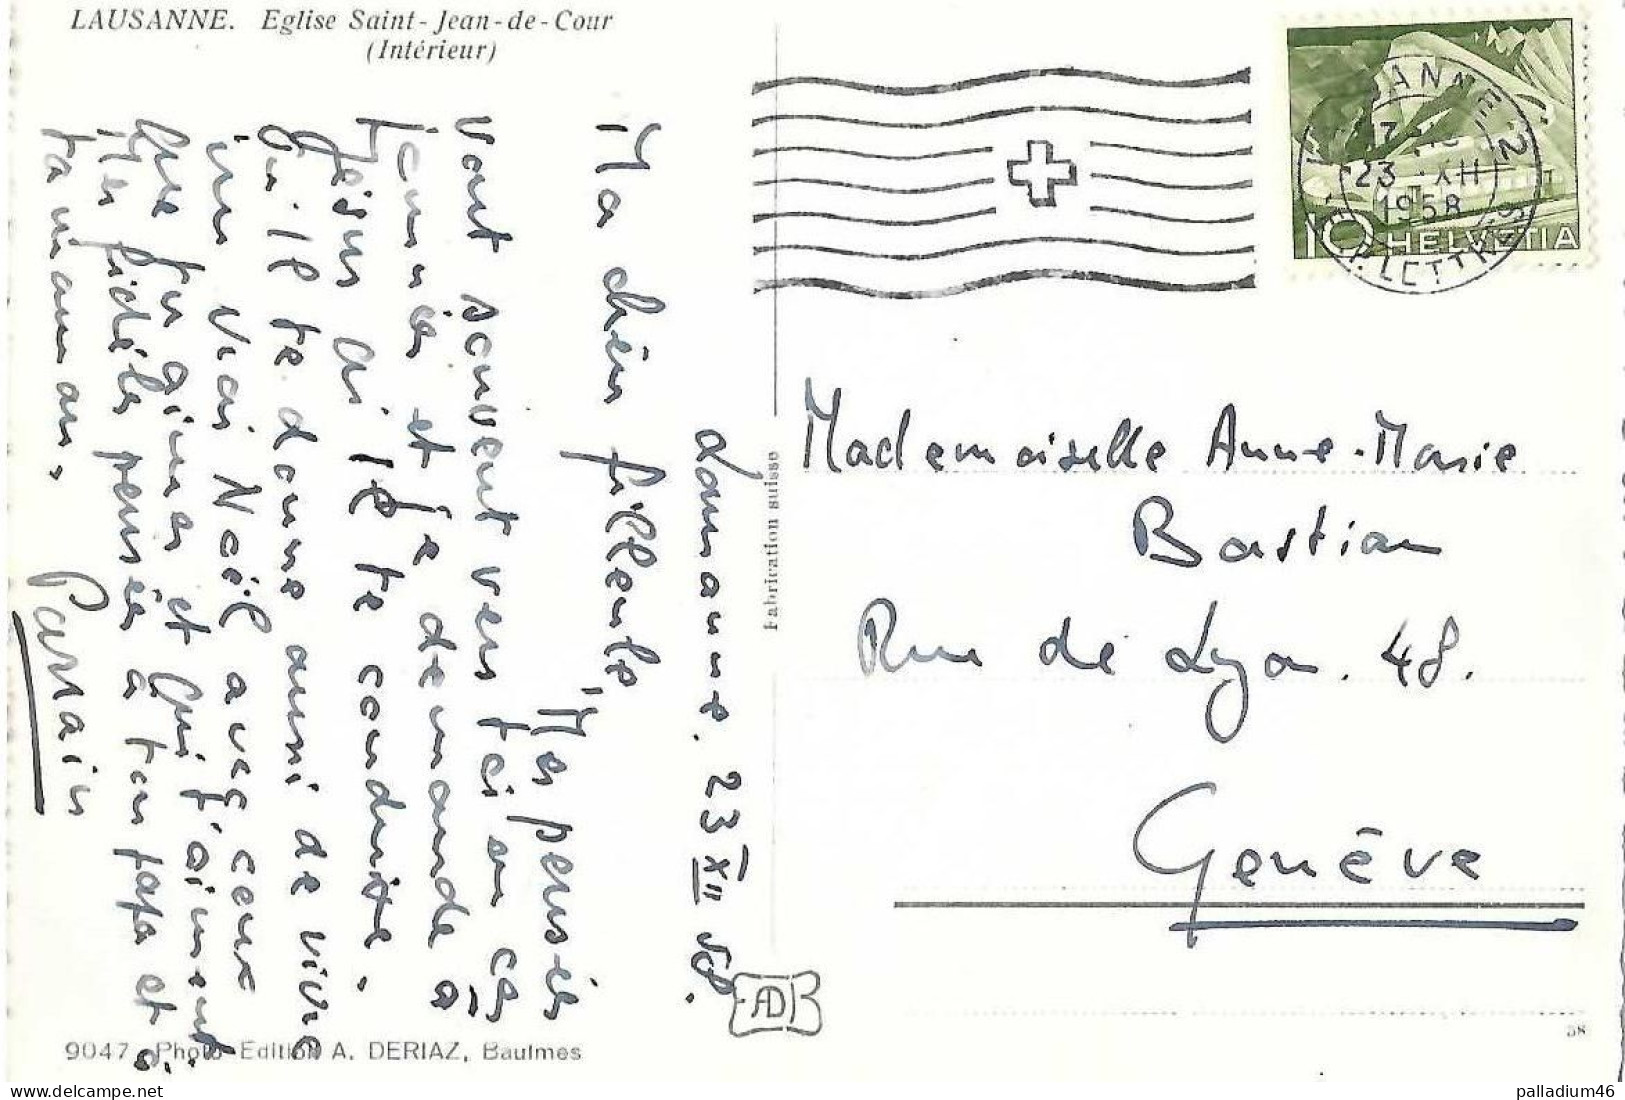 LAUSANNE. Eglise Saint-Jean-de-Cour
(Intérieur)
Lausanne. 23 XII 58.
Ma chère filleule,
Mes pensées
vont souvent vers toi en ces
journées et je demande à
Jésus qu'il te conduise,
qu'il te donne aussi de vivre
un vrai Noël avec ceux
que tu aimes et qui t'aiment.
Mes fidèles pensées à ton papa et à
ta maman,
Parrain
9047 Photo Edition A. DERIAZ, Baulmes
Fabrication suisse
AD
LAUSANNE 2
23.XII
1958
EXP. LETTRES
10 HELVETIA
Mademoiselle Anne-Marie
Bastian
Rue de Lyon. 48.
Genève
58
delcampe.net
palladium46